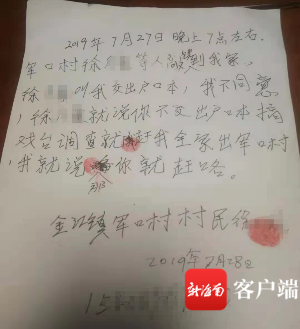 2019年7月27日晚上7点左右,
军口村徐 等人 到我家,
徐 叫我交出户口本,我不同意
,徐 就说你不交出户口本搞
戏台调查就赶我全家出军口村
,我就说那你就赶咯。
金江镇军口村村民徐
2019年7月28日
15
新海南
客户端